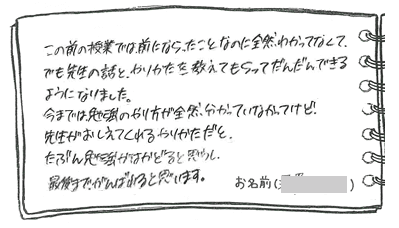 この前の授業では前にならったことなのに全然わかってなくて、
でも先生の話と、やりかたを教えてもらってだんだんできる
ようになりました。
今までは勉強のやり方が全然、分かっていなかってけど、
先生がおしえてくれるやりかただと、
たぶん勉強がはかどると思うし、
最後までがんばれると思います。 お名前(